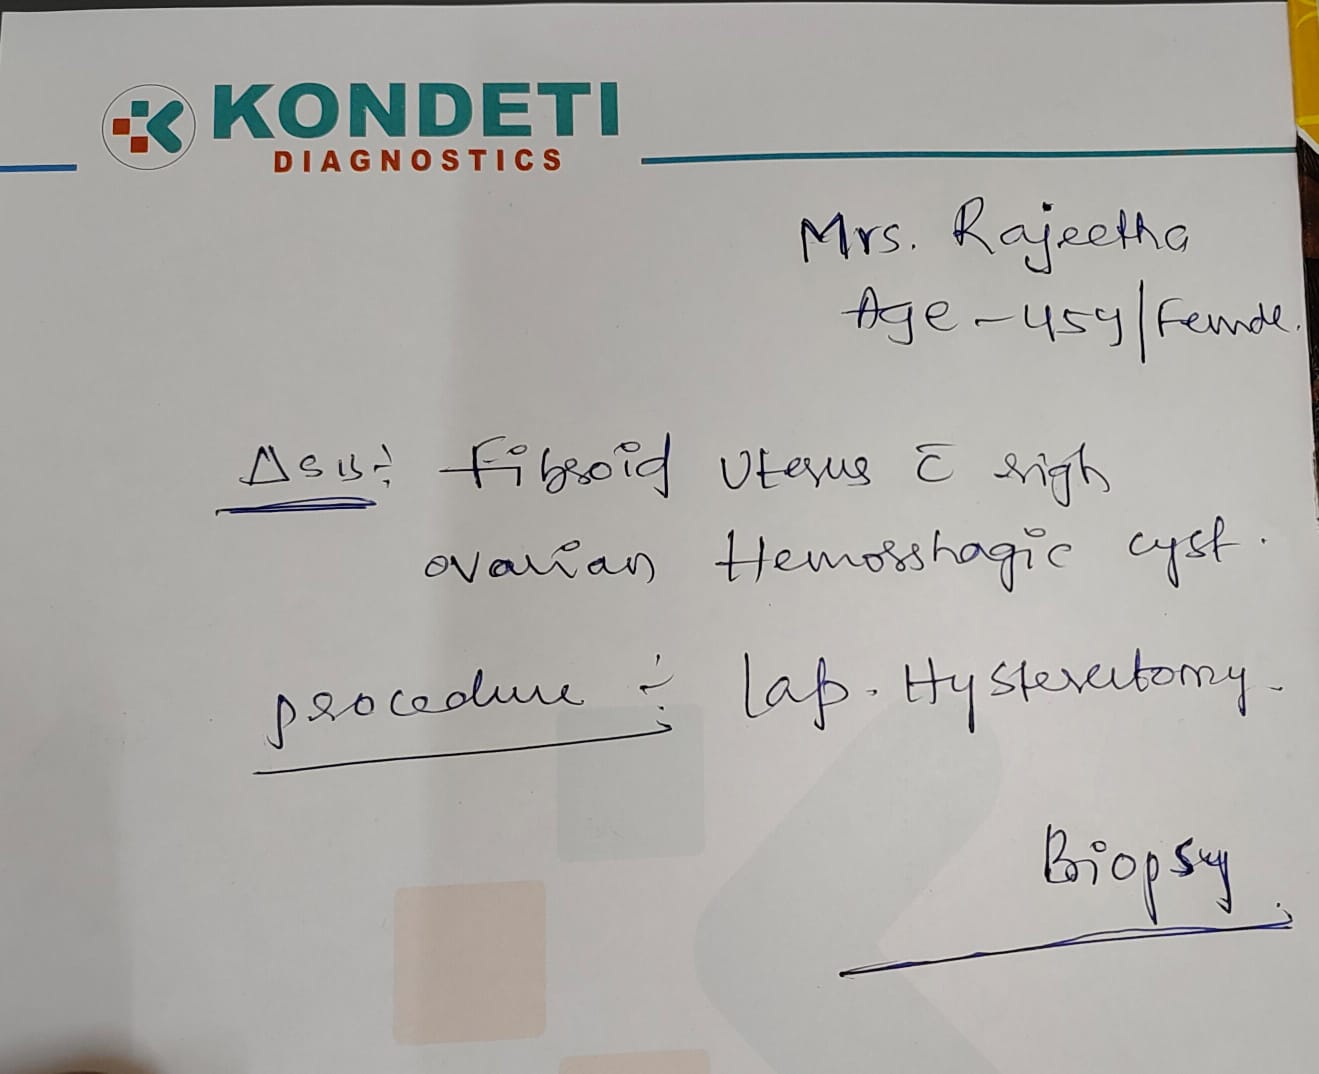 KONDETI
DIAGNOSTICS
Mrs. Rajeetha
Age - 45y/Female.
Fibroid Uterus c̄ righ
ovarian Hemorrhagic cyst.
procedure ÷ Lap. Hysterectomy.
Biopsy